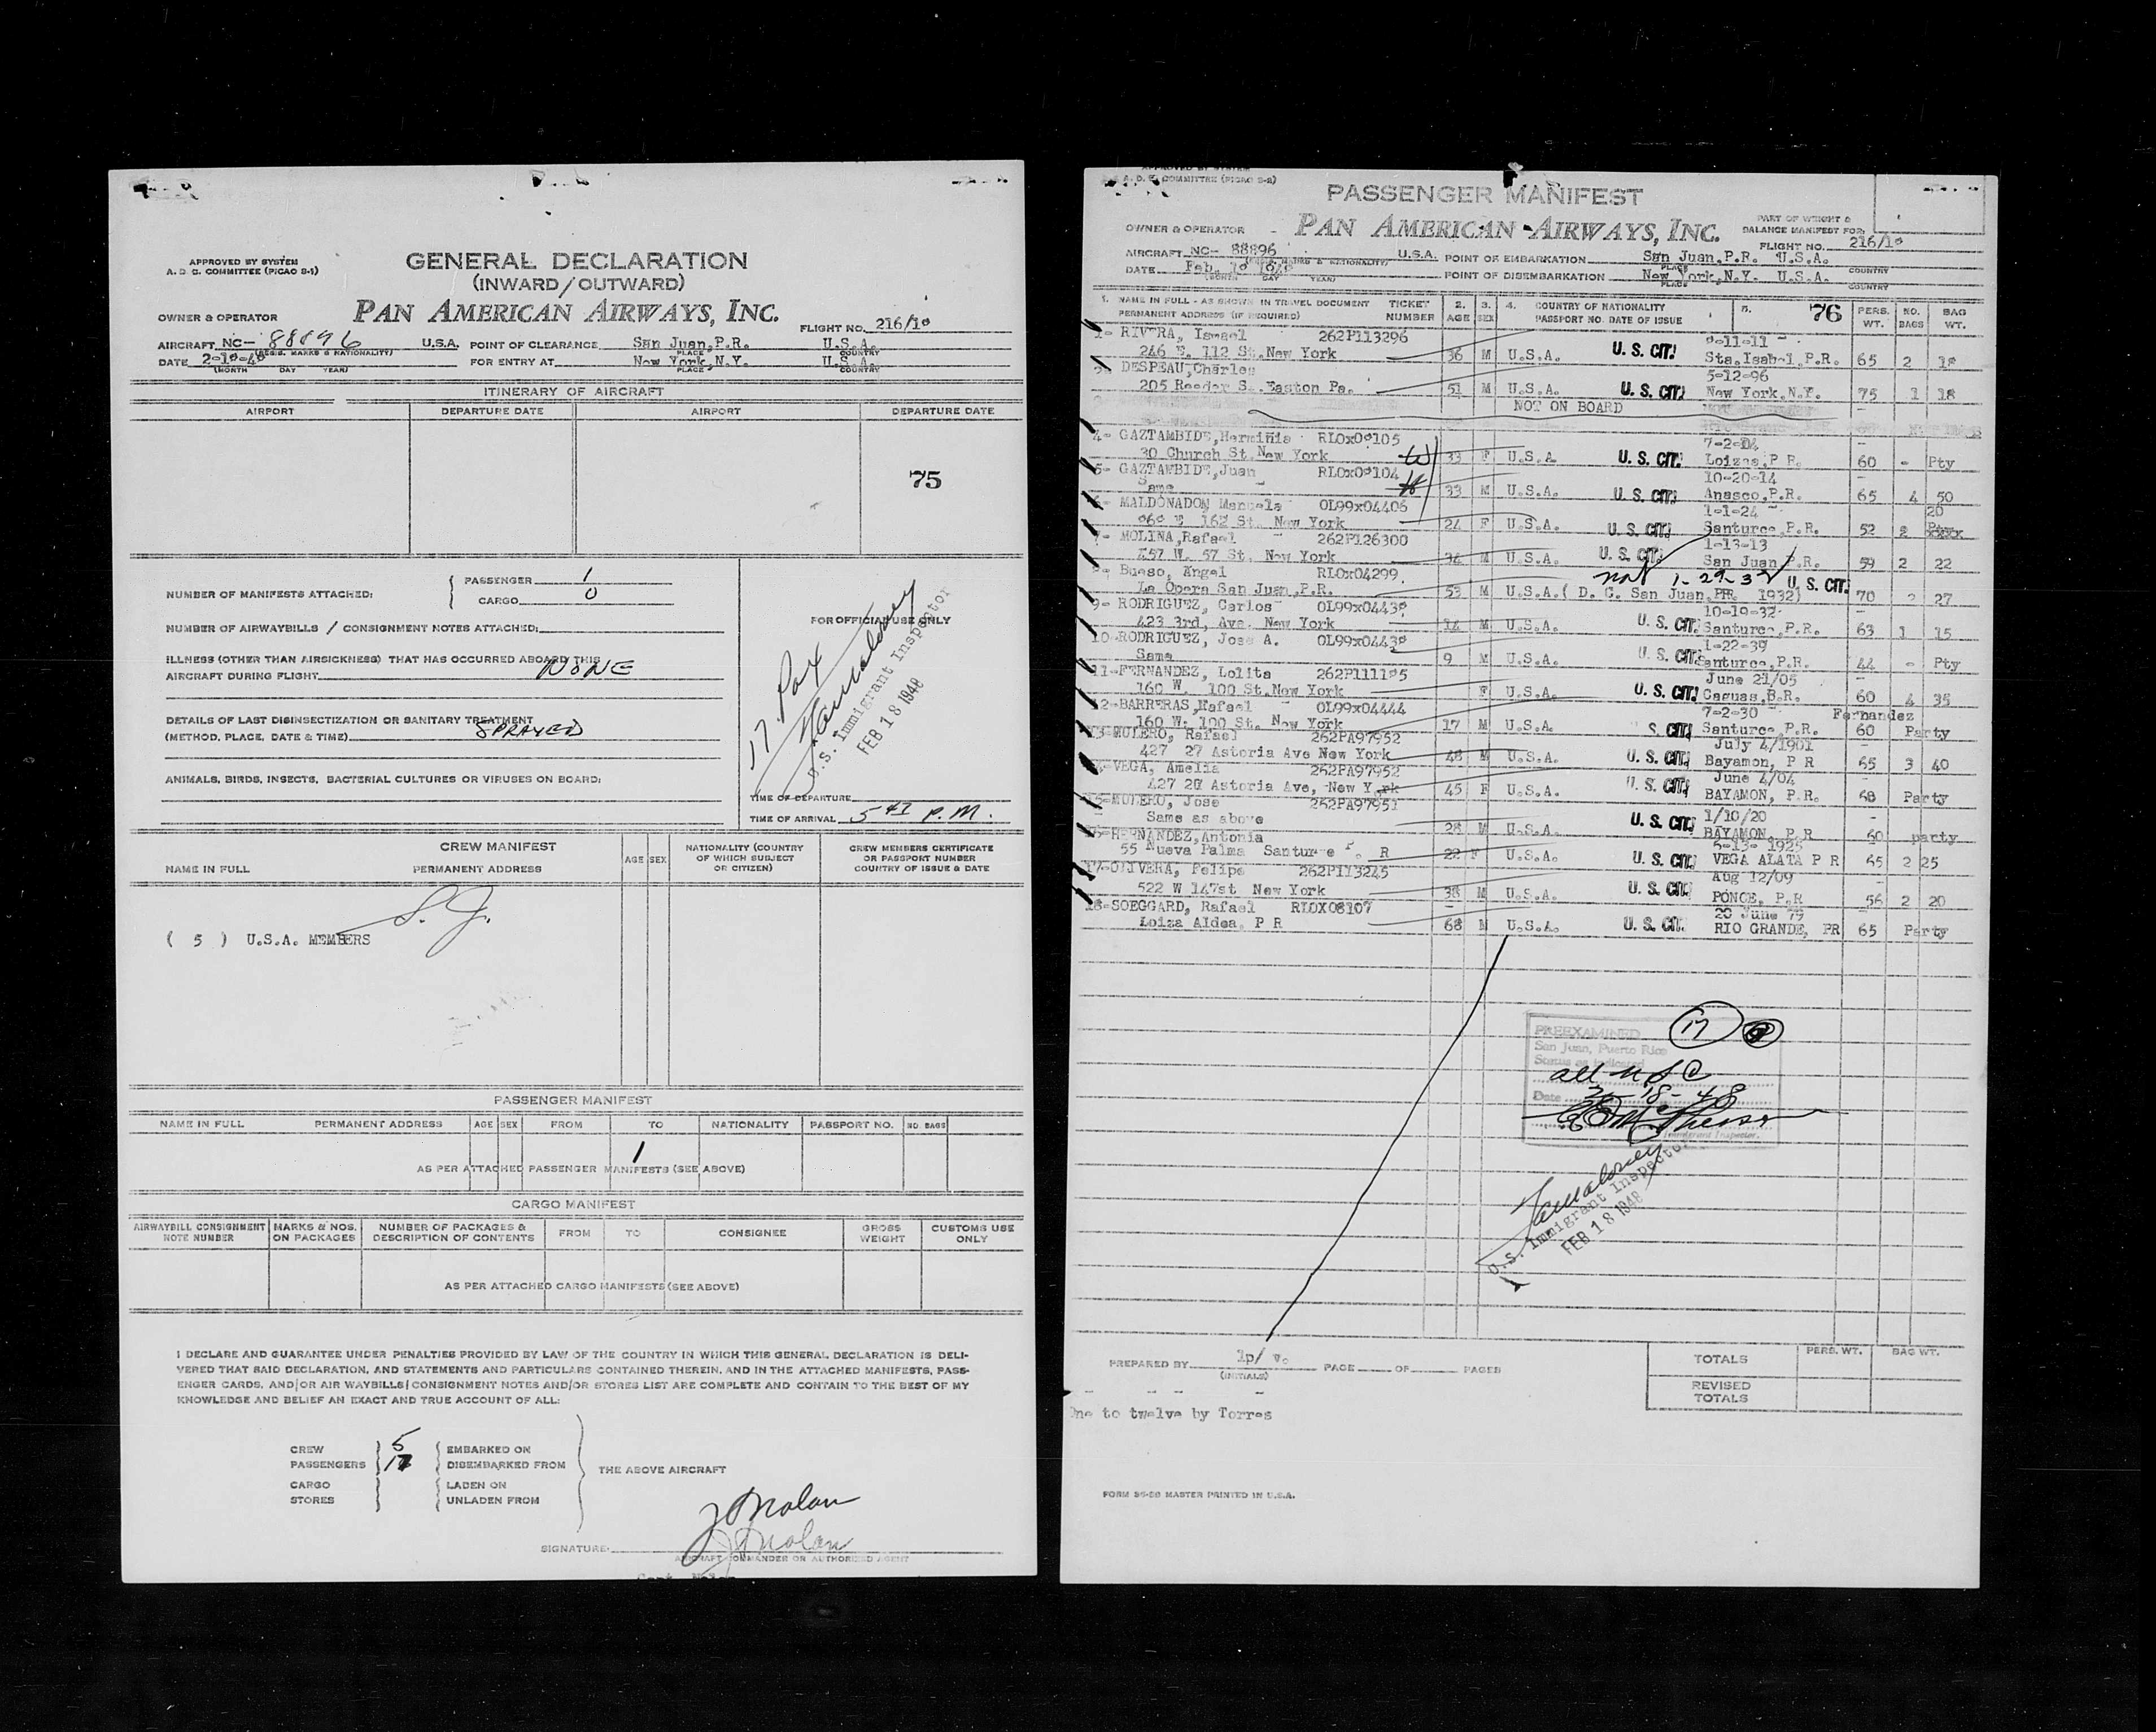 APPROVED BY SYSTEM
A. D. C. COMMITTEE (PICAO S-1)
GENERAL DECLARATION
(INWARD/OUTWARD)
OWNER & OPERATOR PAN AMERICAN AIRWAYS, INC. FLIGHT NO. 216/18
AIRCRAFT NC- 88896 U.S.A. POINT OF CLEARANCE San Juan,P.R. U.S.A.
(REGIS. MARKS & NATIONALITY) PLACE COUNTRY
DATE 2-18-48 FOR ENTRY AT New York,N.Y. U.S.A.
(MONTH DAY YEAR) PLACE COUNTRY
ITINERARY OF AIRCRAFT
AIRPORT DEPARTURE DATE AIRPORT DEPARTURE DATE
75
NUMBER OF MANIFESTS ATTACHED: PASSENGER 1
CARGO 0
NUMBER OF AIRWAYBILLS / CONSIGNMENT NOTES ATTACHED:
ILLNESS (OTHER THAN AIRSICKNESS) THAT HAS OCCURRED ABOARD THIS
AIRCRAFT DURING FLIGHT NONE
DETAILS OF LAST DISINSECTIZATION OR SANITARY TREATMENT
(METHOD, PLACE, DATE & TIME) SPRAYED
ANIMALS, BIRDS, INSECTS, BACTERIAL CULTURES OR VIRUSES ON BOARD:
FOR OFFICIAL USE ONLY
17 Pax
U.S. Immigrant Inspector
FEB 18 1948
TIME OF DEPARTURE
TIME OF ARRIVAL 5 41 P.M.
CREW MANIFEST
NAME IN FULL PERMANENT ADDRESS AGE SEX NATIONALITY (COUNTRY OF WHICH SUBJECT OR CITIZEN) CREW MEMBERS CERTIFICATE OR PASSPORT NUMBER COUNTRY OF ISSUE & DATE
S. J.
( 5 ) U.S.A. MEMBERS
PASSENGER MANIFEST
NAME IN FULL PERMANENT ADDRESS AGE SEX FROM TO NATIONALITY PASSPORT NO. NO. BAGS
1
AS PER ATTACHED PASSENGER MANIFESTS (SEE ABOVE)
CARGO MANIFEST
AIRWAYBILL CONSIGNMENT NOTE NUMBER MARKS & NOS. ON PACKAGES NUMBER OF PACKAGES & DESCRIPTION OF CONTENTS FROM TO CONSIGNEE GROSS WEIGHT CUSTOMS USE ONLY
AS PER ATTACHED CARGO MANIFESTS (SEE ABOVE)
I DECLARE AND GUARANTEE UNDER PENALTIES PROVIDED BY LAW OF THE COUNTRY IN WHICH THIS GENERAL DECLARATION IS DELI-
VERED THAT SAID DECLARATION, AND STATEMENTS AND PARTICULARS CONTAINED THEREIN, AND IN THE ATTACHED MANIFESTS, PASS-
ENGER CARDS, AND/OR AIR WAYBILLS/CONSIGNMENT NOTES AND/OR STORES LIST ARE COMPLETE AND CONTAIN TO THE BEST OF MY
KNOWLEDGE AND BELIEF AN EXACT AND TRUE ACCOUNT OF ALL:
CREW 5 EMBARKED ON
PASSENGERS 17 DISEMBARKED FROM THE ABOVE AIRCRAFT
CARGO LADEN ON
STORES UNLADEN FROM
Nolan
SIGNATURE Nolan
AIRCRAFT COMMANDER OR AUTHORIZED AGENT
APPROVED BY SYSTEM
A. D. C. COMMITTEE (PICAO S-2)
PASSENGER MANIFEST
OWNER & OPERATOR - PAN AMERICAN AIRWAYS, INC. PART OF WEIGHT & BALANCE MANIFEST FOR:
FLIGHT NO. 216/18
AIRCRAFT NC- 88896 U.S.A. POINT OF EMBARKATION San Juan,P.R. U.S.A.
DATE Feb. 18 1948 POINT OF DISEMBARKATION New York,N.Y. U.S.A.
(MONTH DAY YEAR) PLACE COUNTRY
1. NAME IN FULL - AS SHOWN IN TRAVEL DOCUMENT TICKET 2. 3. 4. COUNTRY OF NATIONALITY 5. 76 PERS. NO. BAG
PERMANENT ADDRESS (IF REQUIRED) NUMBER AGE SEX PASSPORT NO. DATE OF ISSUE WT. BAGS WT.
1- RIVERA, Ismael 262P113296 8-11-11
246 E. 112 St.New York 36 M U.S.A. U. S. CIT. Sta.Isabel,P.R. 65 2 18
DESPEAU,Charles 5-12-96
205 Reeder St.Easton Pa. 51 M U.S.A. U. S. CIT. New York,N.Y. 75 1 18
NOT ON BOARD
4- GAZTAMBIDE,Herminia RLOx08105
30 Church St.New York W 33 F U.S.A U. S. CIT. Loizas,P.R. 60 - Pty
5- GAZTAMBIDE,Juan RLOx08104 10-20-14
Same H 33 M U.S.A. U. S. CIT. Anasco,P.R. 65 4 50
6- MALDONADON Manuela OL99x04406 1-1-24 20
E 162 St. New York 24 F U.S.A. U. S. CIT. Santurce,P.R. 52 2 Pty
7- MOLINA,Rafael 262P126300 1-13-13
457 W. 57 St. New York 34 M U.S.A. U. S. CIT. San Juan P.R. 59 2 22
8- Bueso, Angel RLOx04299. nat 1-29-32 U. S. CIT.
La Opera San Juan,P.R. 53 M U.S.A.( D. C. San Juan,PR. 1932) 70 2 27
9- RODRIGUEZ, Carlos OL99x04438 10-19-32
423 3rd, Ave. New York 14 M U.S.A. U. S. CIT. Santurce,P.R. 63 1 15
10-RODRIGUEZ, Jose A. OL99x04438 1-22-39
Same 9 M U.S.A. U. S. CIT. Santurce,P.R. 44 - Pty
11-FERNANDEZ, Lolita 262P111185 June 21/05
160 W. 100 St.New York F U.S.A. U. S. CIT. Caguas,P.R. 60 4 35
12-BARRERAS,Rafael OL99x04444 7-2-30 Fernandez
160 W. 100 St. New York 17 M U.S.A. S. CIT. Santurce,P.R. 60 Party
13-MULERO, Rafael 262PA97952 July 4/1901
427 27 Astoria Ave New York 46 M U.S.A. U. S. CIT. Bayamon, P R 65 3 40
14-VEGA, Amelia 262PA97952 June 4/04
427 27 Astoria Ave, New York 45 F U.S.A. U. S. CIT. BAYAMON, P.R. 68 Party
15-MULERO, Jose 262PA97951 1/10/20
Same as above 28 M U.S.A. U. S. CIT. BAYAMON, P.R 60 party
16-HERNANDEZ,Antonia 6-13- 1925
55 Nueva Palma Santurce P. R 22 F U.S.A. U. S. CIT. VEGA ALATA P R 65 2 25
17-OLIVERA, Felipe 262P113245 Aug 12/09
522 W 147st New York 38 M U.S.A. U. S. CIT. PONCE, P.R 56 2 20
18-SOEGGARD, Rafael RLOX08107 20 June 79
Loiza Aldea, P R 68 M U.S.A. U. S. CIT. RIO GRANDE, PR 65 Party
PREEXAMINED 17
San Juan, Puerto Rico
Status as indicated
all USC
Date 2-18-48
Immigrant Inspector.
U.S. Immigrant Inspector
FEB 18 1948
PREPARED BY lp/ PAGE OF PAGES
(INITIALS)
PERS. WT. BAG WT.
TOTALS
REVISED TOTALS
One to twelve by Torres
FORM 35-30 MASTER PRINTED IN U.S.A.